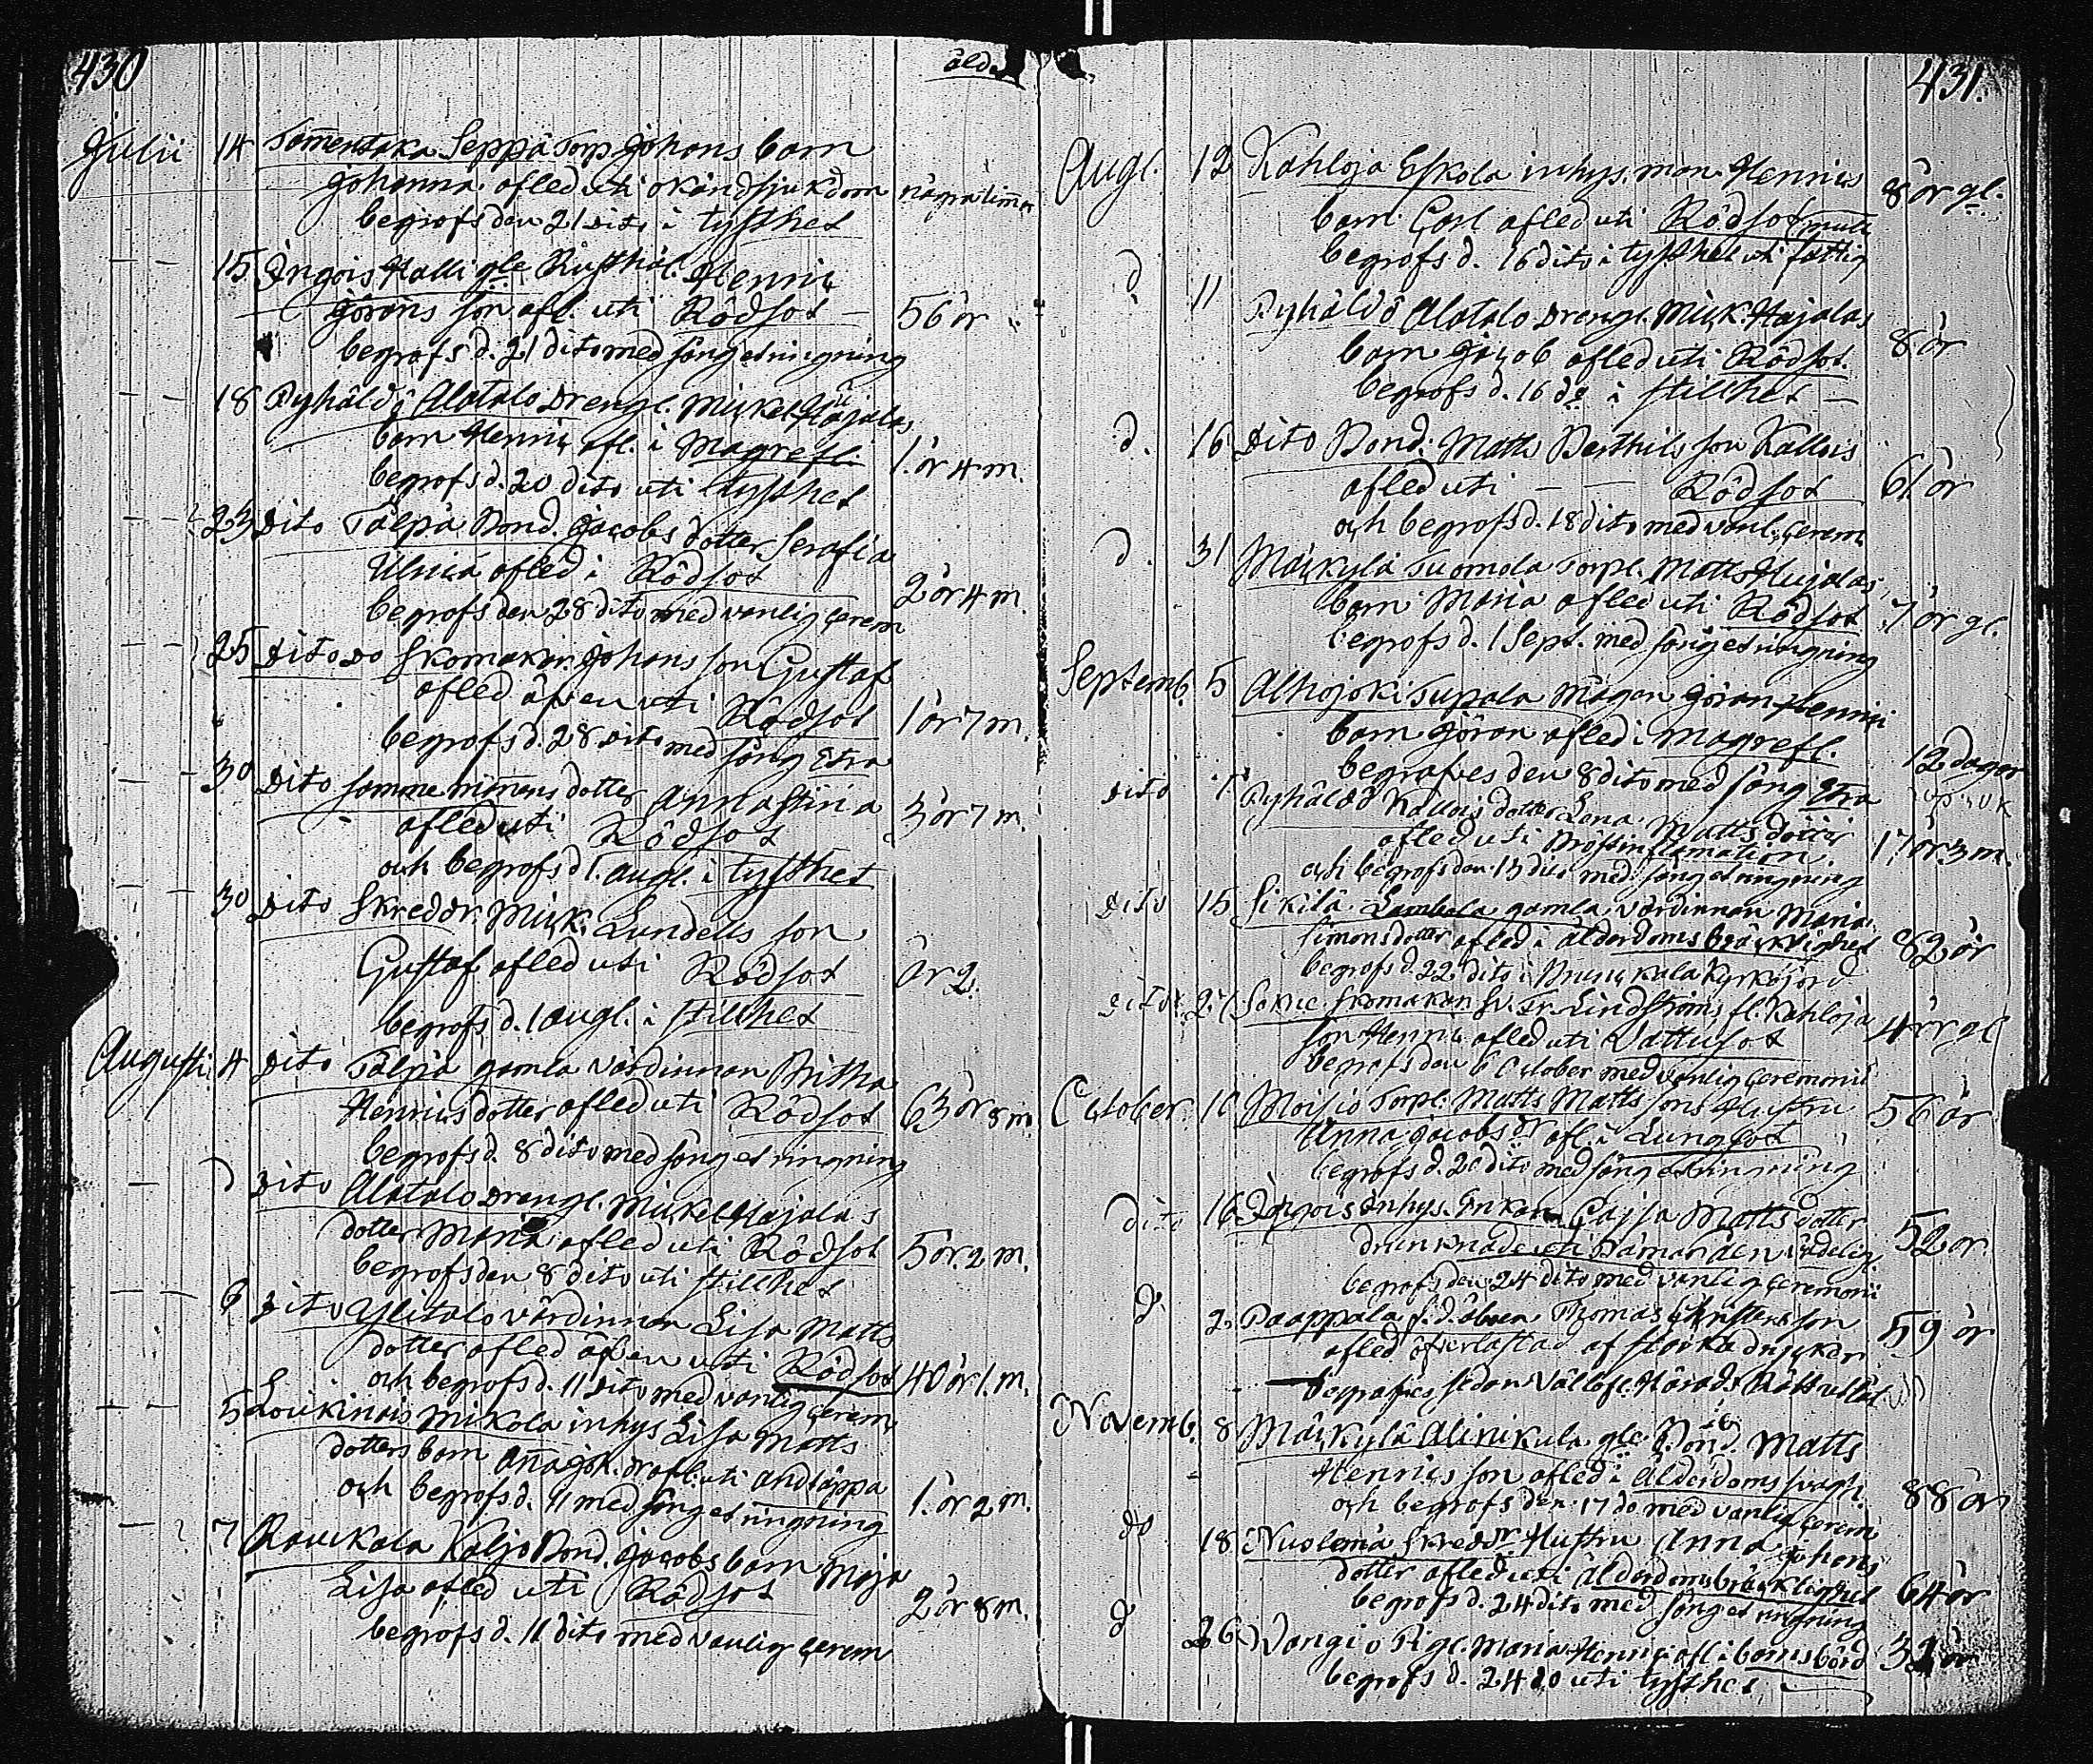 430
åld
Julii 14 Tommentaka Seppä Torp Johans barn
Johanna afled uti okänd sjukdom några timar
begrofs den 21 dito i tysthet
15 Ingois Halli gle Rusthål. Henric
Görans son afl. uti Rödsot 56 år
begrofs d. 21 dito med sång et ringning
18 Pyhäldö Alatalo Drengl. Mickel Hajalas
barn Henric afl. i Magrefl. 1 år 4 m.
begrofs d. 20 dito uti tysthet
23 Dito Tälpä Bond. Jacobs dotter Serafia
Ulrica afled i Rödsot 2 år 4 m.
begrofs den 28 dito med vanlig cerem
25 Dito Do Skomakar. Johans son Gustaf
afled äfven uti Rödsot 1 år 7 m.
begrofs d. 28 dito med sång etra
30 Dito samme mans dotter Anna Stina
afled uti Rödsot 3 år 7 m.
och begrofs d 1. augl. i tysthet
30 Dito Skreddr. Mick. Lundells son
Gustaf afled uti Rödsot år 2.
begrofs d. 1 augl. i stillhet
Augusti 4 Dito Tälpä gamla värdinnan Britha
Henricsdotter afled uti Rödsot 63 år 8 m
begrofs d. 8 dito med sång et ringning
d Dito Alatalo Drengl. Mickel Hajalas
dotter Maria afled uti Rödsot 5 år. 2 m.
begrofs den 8 dito uti stillhet
6 Dito Ylitalo värdinnan Lisa Matts
dotter afled äfven uti Rödsot 40 år 1. m.
och begrofs d. 11 dito med vanlig cerem
5 Loukinais Mikola inhys Lisa Matts
dotters barn Anna Joh. dr afl. uti andtäppa 1. år 2 m.
och begrofs d. 11 med sång et ringning
7 Raukala Kaljo Bond. Jacobs barn Maja
Lisa afled uti Rödsot 2 år 8 m.
begrofs d. 11 dito med vanlig cerem
431.
Augl. 12 Kahloja Eskola inhys. man Henrics 8 år gl.
barn Carl afled uti Rödsot
begrofs d. 16 dito i tysthet uti fattig
d 11 Pyhäldö Alatalo Drengl. Mick. Hajalas
barn Jacob afled uti Rödsot. 8 år
begrofs d. 16 do i stillhet
d. 16 Dito Bond. Matts Berthils son Kallois
afled uti Rödsot 61 år
och begrofs d. 18 dito med vanl. cerem
d. 31 Mäckylä Tuomola Torpl. Matts Hujalas
barn Maria afled uti Rödsot 7 år gl.
begrofs d. 1 Sept. med sång et ringning
Septemb. 5 Alhojoki Tupala Mågen Göran Henrics
barn Göran afled i Magrefl. 12 dagar
begrafves den 8 dito med sång etra
Dito Pyhäldö Kallois dotter Lena Matts dotter
afled uti Bröstinflamation. 17 år 3 m.
och begrofs den 13 dito med sång et ringning
Dito 15 Sikilä Lambola gamla värdinnan Maria
Simonsdotter afled i ålderdoms bräcklighet 82 år
begrofs d. 22 dito i Brunkala Kyrkojord
Dito 27 Skomakar. Lindströms fl. Kahloja
son Henric afled uti Vattusot 4 år gl
begrofs den 6 October med vanlig ceremoni
October. 10 Moisio Torpl. Matts Matts sons Hustru 56 år
Anna Jacobs dr afl. i Lungsot
begrofs d. 20 dito med sång et ringning
Dito 16 Ingois Inhys. Enkan Cajsa Matts dotter
drunknade uti 52 år
begrofs den 24 dito med vanlig ceremoni
d 2. Paappala f. d. Thomas Christersson 59 år
afled öfverlastad af starka drycker
begrafves sedan Välbl. Härads Rätt
Novemb. 8 Mäckylä Alinikula gle Bond. Matts
Henrics son afled i Ålderdoms svagh. 88 år
och begrofs den 17 do med vanlig cerem
do 18 Nuolemä Skreddr Hustru Anna Johans
dotter afled uti ålderdoms bräcklighet 64 år
begrofs d. 24 dito med sång et ringning
d 26 Wangio Pigl. Maria Henric. afl i barnsbörd 31 år
begrofs d. 24 do uti tysthet